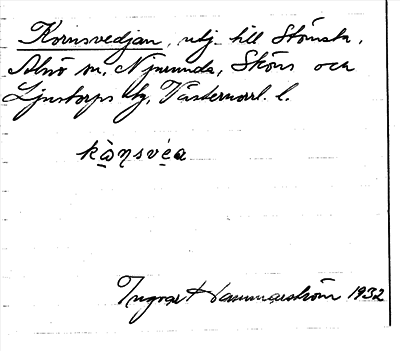 Kornsvedjan, utj. till Stönsta,
Alnö sn, Njurunda, Sköns och
Ljustorps tg, Västernorrl. l.
kò̱ηsvèa
Ingvar Hammarström 1932